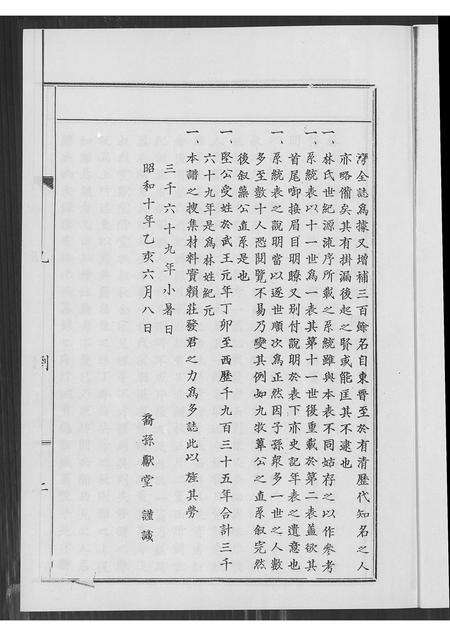 灣全誌爲據又增補三百餘名自東晋至於有清歷代知名之人
亦略備矣其有掛漏後起之賢或能匡其不逮也
一、林氏世紀源流序所載之系統雖與本表不同姑存之以作參考
一、系統表以十一世爲一表其第十一世復重載於第二表蓋欲其
首尾啣換眉目明瞭又別付說明於表下亦史記年表之遺意也
一、系統表之說明當以逐世順次爲正然因子孫衆多一世之人數
多至數十人恐閱覽不易乃變其例如九牧葦公之直系叙完然
後叙藻公直系是也
一、堅公受姓於武王元年丁卯至西歷千九百三十五年合計三千
六十九年是爲林姓紀元
一、本譜之搜集材料實賴莊發君之力爲多誌此以旌其勞
三千六十九年小暑日
昭和十年乙亥六月八日
裔孫獻堂 謹識
凡例
二